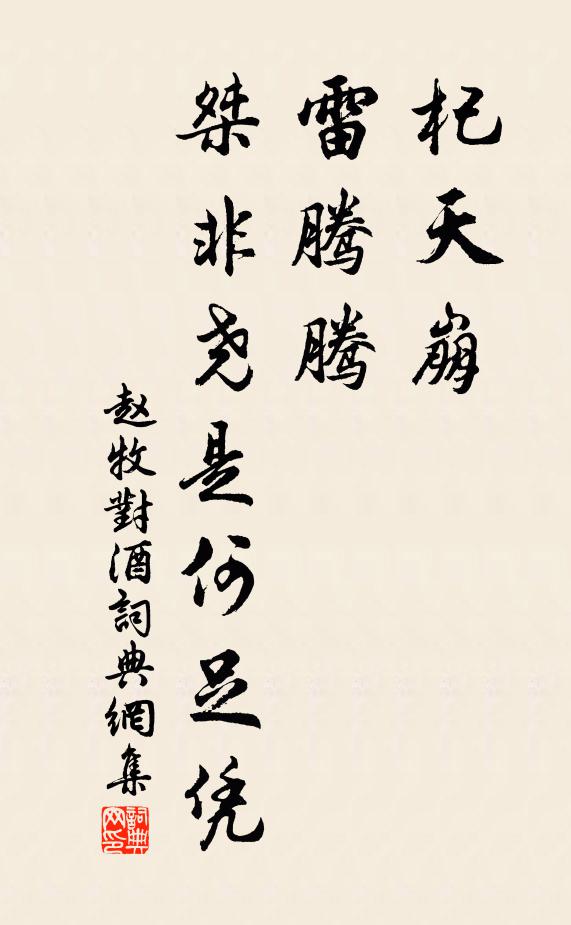 杞天崩
雷腾腾
桀非尧是何足凭
赵牧對酒詞典網集
詞典网印